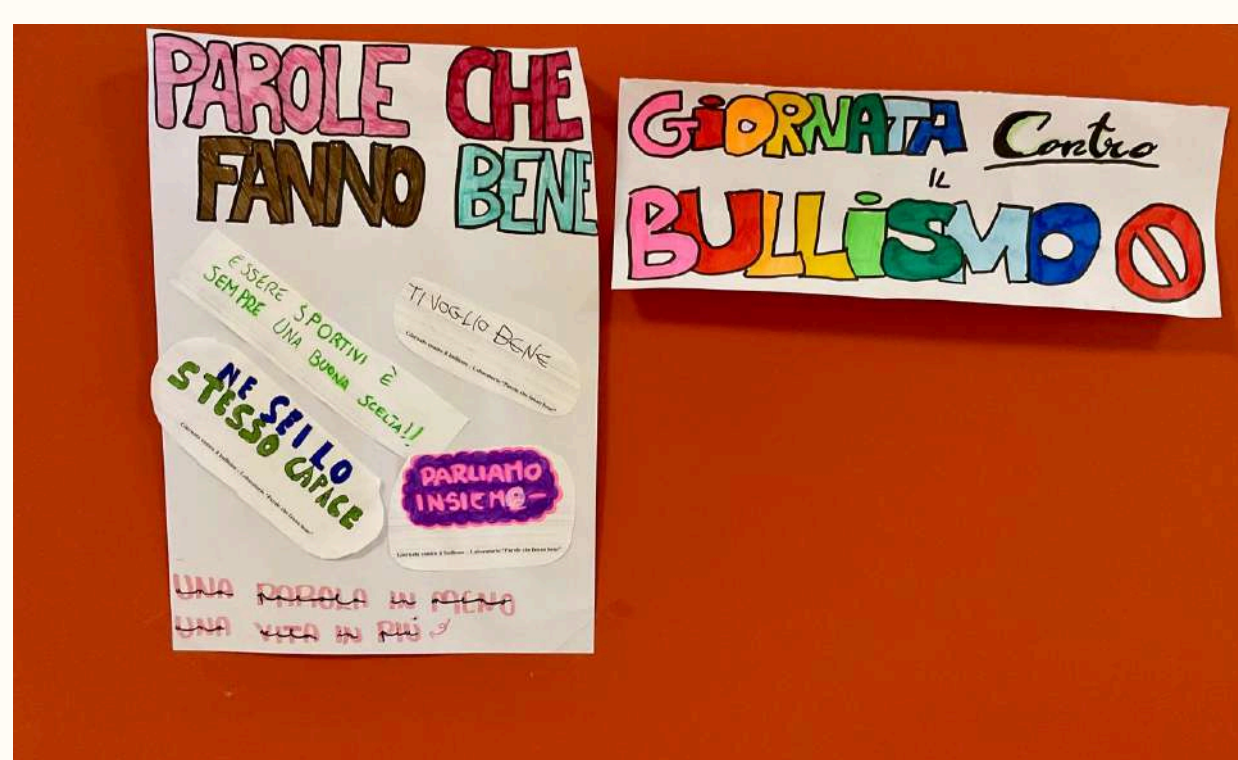 PAROLE CHE
FANNO BENE
ESSERE SPORTIVI È
SEMPRE UNA BUONA SCELTA!!
TI VOGLIO BENE
Giornata contro il bullismo - Laboratorio "Parole che fanno bene"
NE SEI LO
STESSO CAPACE
Giornata contro il bullismo - Laboratorio "Parole che fanno bene"
PARLIAMO
INSIEME
Giornata contro il bullismo - Laboratorio "Parole che fanno bene"
UNA PAROLA IN MENO
UNA VITA IN PIÙ
GIORNATA Contro
IL
BULLISMO